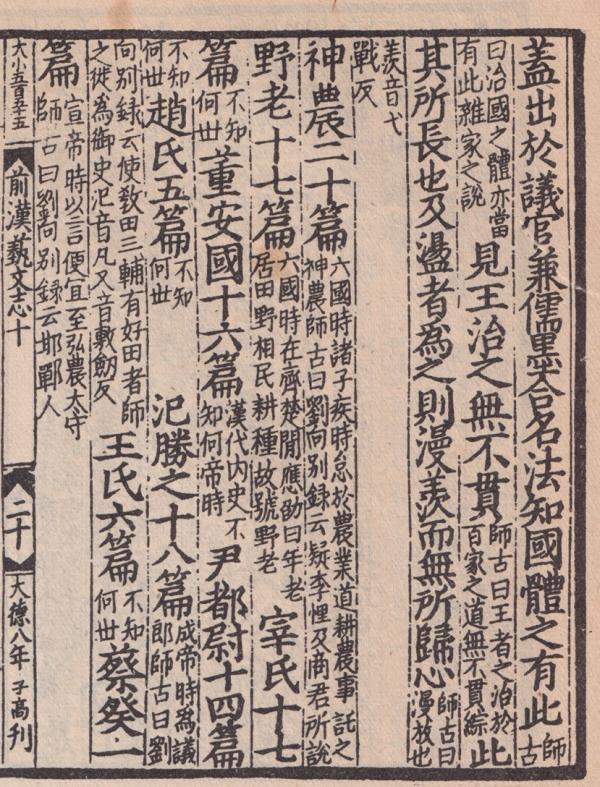 蓋出於議官兼儒墨合名法知國體之有此師古
曰治國之體亦當有此雜家之說見王治之無不貫師古曰王者之治於百家之道無不貫綜此
其所長也及盪者為之則漫羨而無所歸心師古曰漫放也
羨音弋戰反
神農二十篇六國時諸子疾時怠於農業道耕農事託之神農師古曰劉向別録云疑李悝及商君所說
野老十七篇六國時在齊楚閒應劭曰年老居田野相民耕種故號野老宰氏十七
篇不知何世董安國十六篇漢代内史不知何帝時尹都尉十四篇
不知何世趙氏五篇不知何世氾勝之十八篇成帝時為議郎師古曰劉
向別録云使教田三輔有好田者師之徙為御史氾音凡又音敷劒反王氏六篇不知何世蔡癸一
篇宣帝時以言便宜至弘農太守師古曰劉向別録云邯鄲人
大小五百五五
前漢藝文志十
二十
大德八年 子高刊